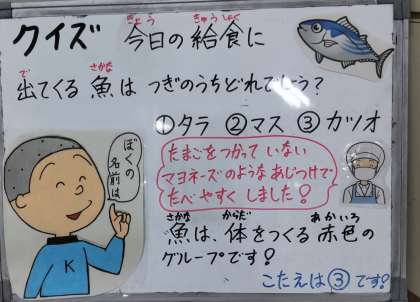 クイズ 今日の給食に
きょう きゅうしょく
出てくる魚はつぎのうちどれでしょう？
で さかな
①タラ ②マス ③カツオ
ぼくの
名前は
たまごをつかっていない
マヨネーズのようなあじつけで
たべやすくしました！
魚は、体をつくる赤色の
さかな からだ あかいろ
グループです！
こたえは③です！
K